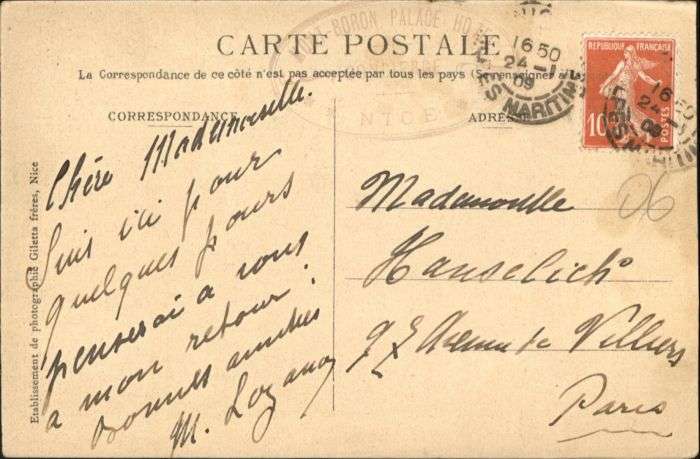 MONT BORON PALACE HO
NICE
CARTE POSTALE
La Correspondance de ce côté n'est pas acceptée par tous les pays (Se renseigner à la
CORRESPONDANCE
Chère Mademoiselle.
Suis ici pour
quelques jours
penserai à vous
a mon retour.
Bonnes amitiés
M. Lozano
ADRESSE
Mademoiselle
9 Avenue de Villiers
Paris
06
16 50
24 - 1
09
ES MARITIM
REPUBLIQUE FRANÇAISE
10
POSTES
16 50
24
09
ES MARITIM
Etablissement de photographie Giletta frères, Nice